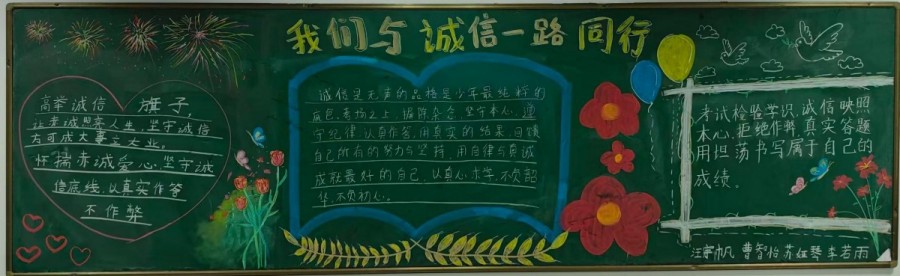 我们与诚信一路同行
高举诚信 旗子,
让赤诚照亮人生,坚守诚信
方可成大事立大业。
怀揣赤诚爱心,坚守诚
信底线,以真实作答
不作弊
诚信是无声的品格是少年最纯粹的
底色,考场之上,摒除杂念,坚守本心,遵
守纪律,认真作答,用真实的结果,回馈
自己所有的努力与坚持,用自律与真诚
成就最好的自己,以真心求学,不负韶
华,不负初心。
考试检验学识,诚信映照
本心,拒绝作弊,真实答题
用坦荡书写属于自己的
成绩。
曹智怡 李若雨